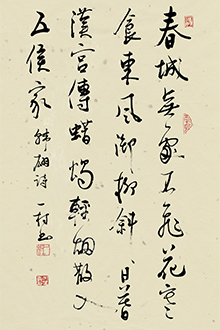 春城無處不飛花寒
食東風御柳斜日暮
漢宮傳蜡燭輕烟散入
五侯家 韓翃詩 一村书